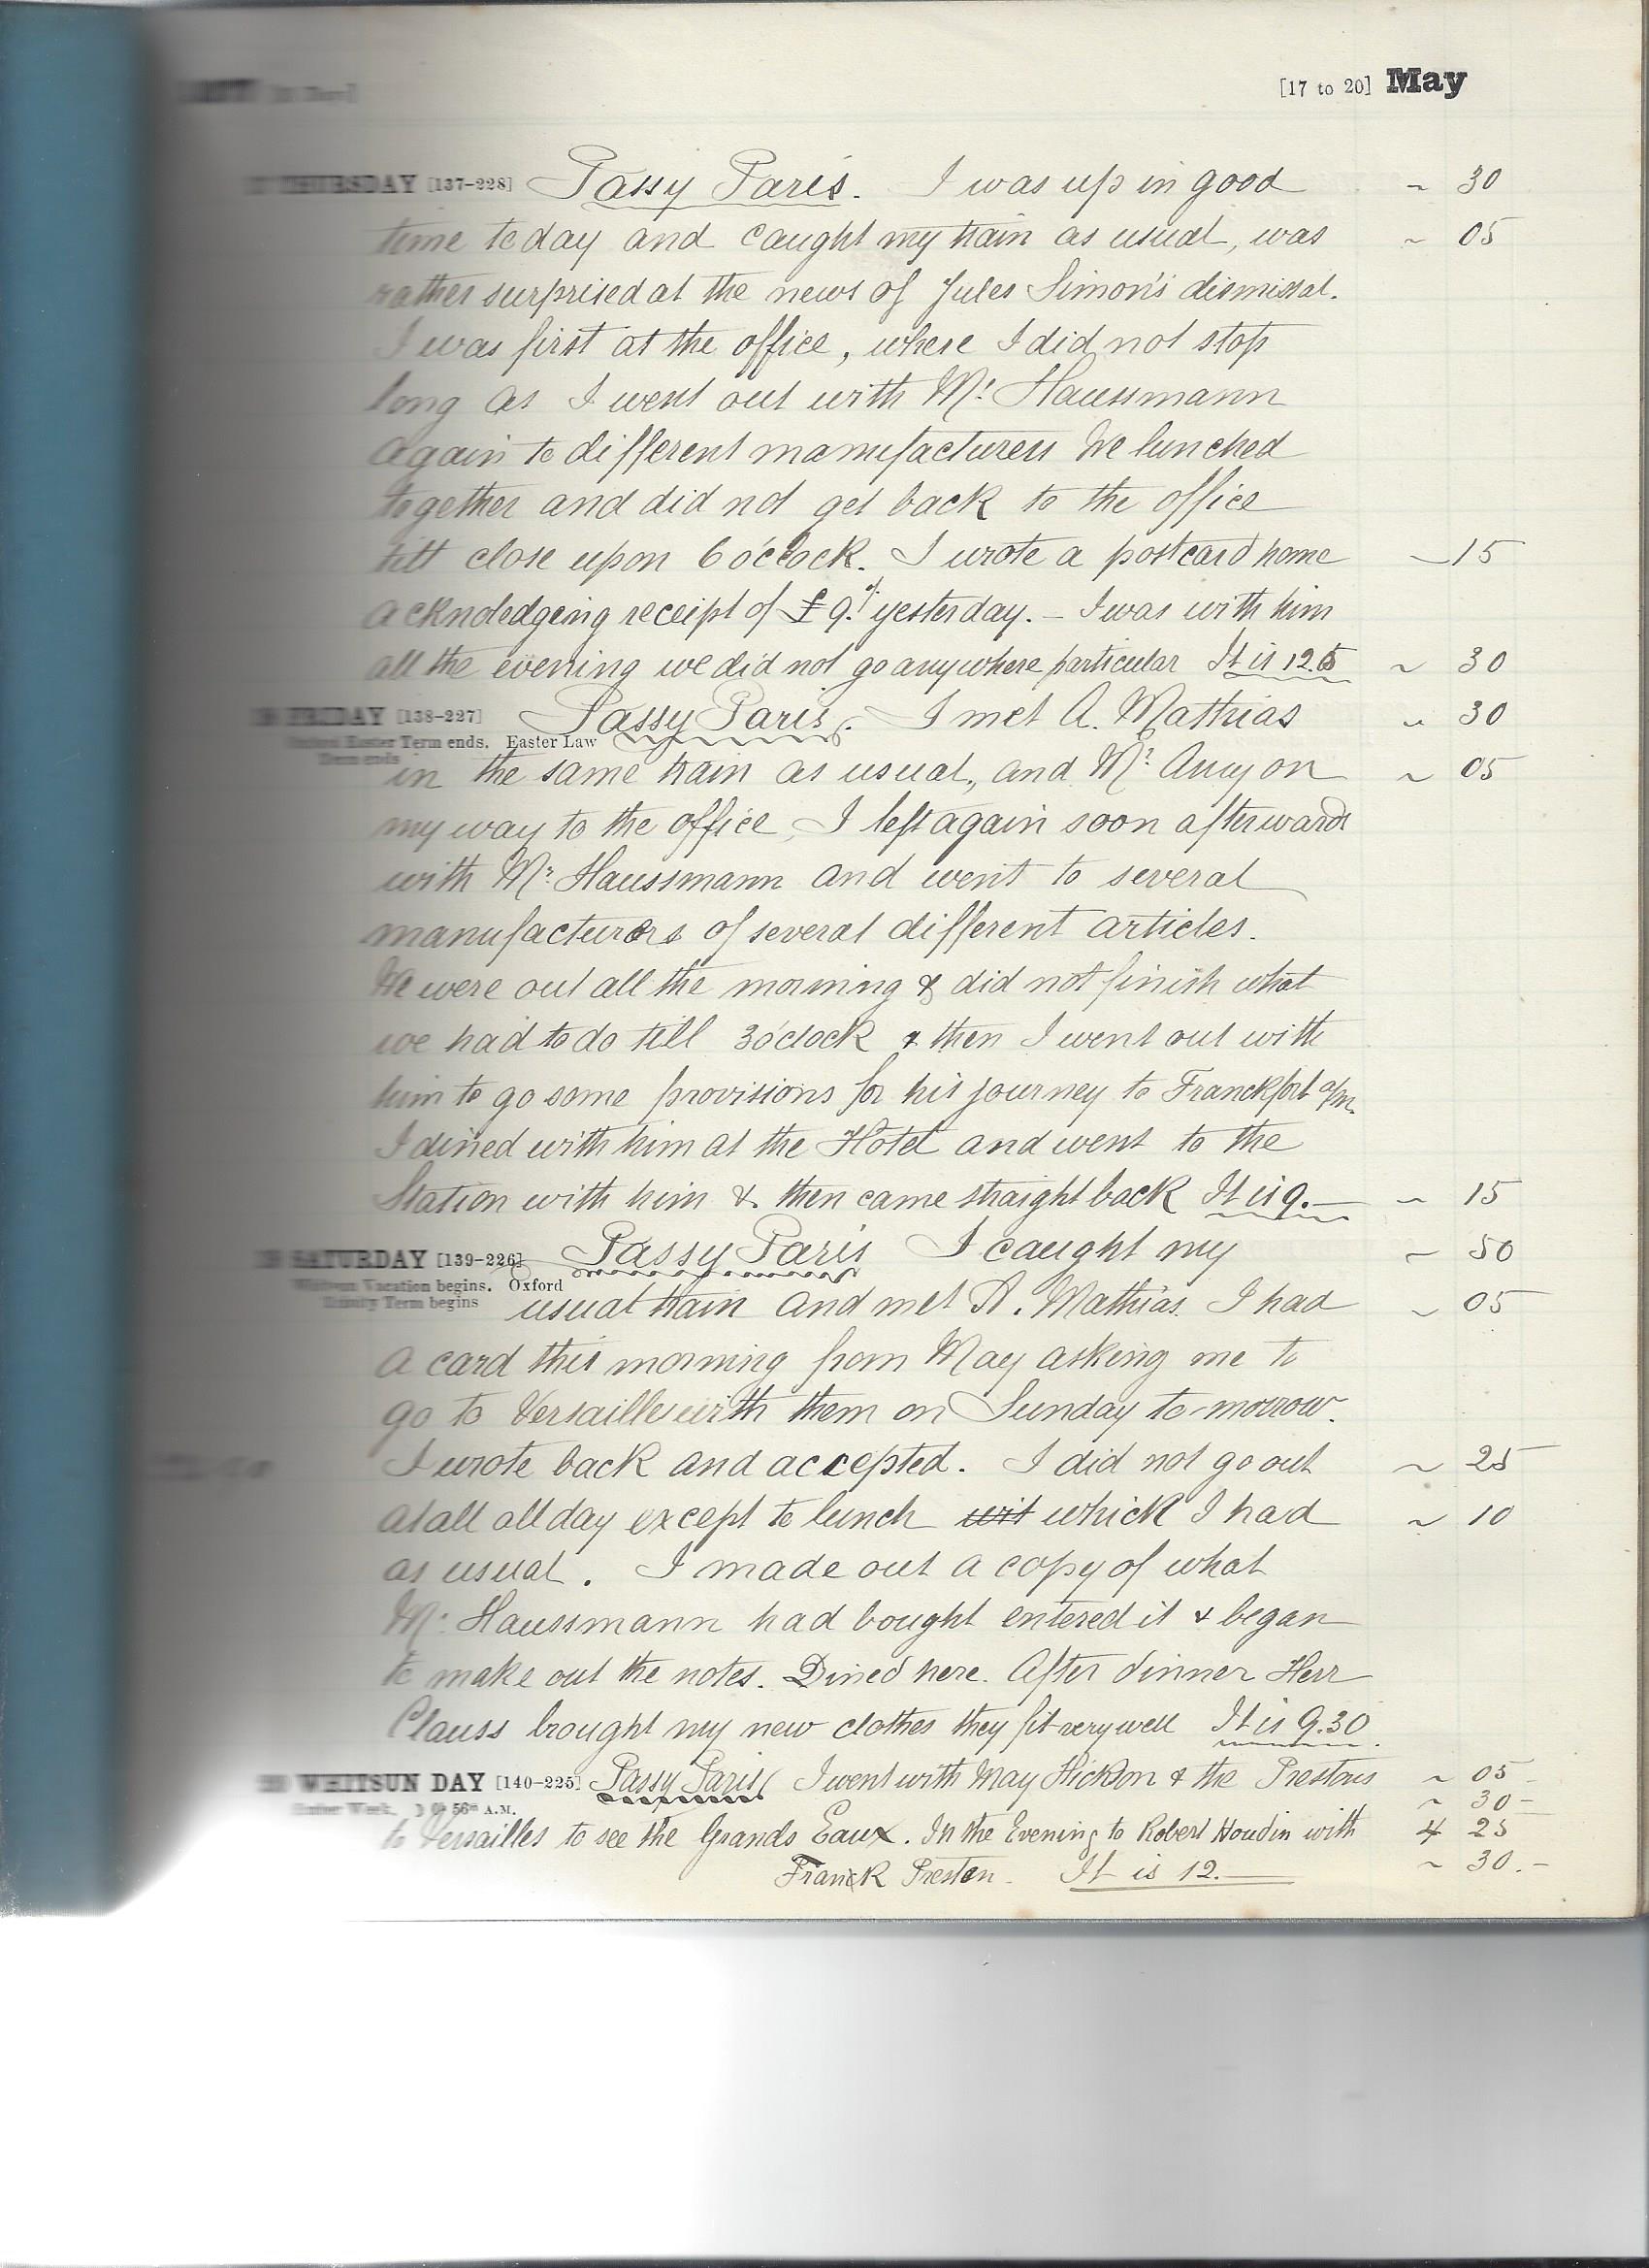 [17 to 20] May
THURSDAY [137-228] Passy Paris. I was up in good ~ 30
time today and caught my train as usual, was ~ 05
rather surprised at the news of Jules Simon's dismissal.
I was first at the office, where I did not stop
long as I went out with Mr. Haussmann
again to different manufacturers We lunched
together and did not get back to the office
till close upon 6 o'clock. I wrote a postcard home ~ 15
acknoledgeing receipt of £9. yesterday. – I was with him
all the evening we did not go anywhere particular It is 12.5 ~ 30
FRIDAY [138-227] Passy Paris. I met A. Mathias ~ 30
Easter Term ends. Easter Law
Term ends
in the same train as usual, and Mr. on ~ 05
my way to the office, I left again soon afterwards
with Mr. Haussmann and went to several
manufacturers of several different articles.
We were out all the morning & did not finish what
we had to do till 3 o'clock & then I went out with
him to go some provisions for his journey to Franckfort a/m.
I dined with him at the Hotel and went to the
Station with him & then came straight back It is 9.— ~ 15
19 SATURDAY [139-226] Passy Paris I caught my ~ 50
Vacation begins. Oxford
Trinity Term begins
usual train and met A. Mathias. I had ~ 05
a card this morning from May asking me to
go to Versailles with them on Sunday to-morrow.
I wrote back and accepted. I did not go out ~ 25
at all all day except to lunch wit which I had ~ 10
as usual. I made out a copy of what
Mr. Haussmann had bought entered it & began
to make out the notes. Dined here. After dinner Herr
Clauss brought my new clothes they fit very well It is 9.30.
20 WHITSUN DAY [140-225] Passy Paris I went with May Hickson & the Prestons ~ 05 –
Ember Week. 56m A.M. ~ 30 –
to Versailles to see the Grands Eaux. In the Evening to Robert Houdin with 4 25
Franck Preston. It is 12.— ~ 30. –